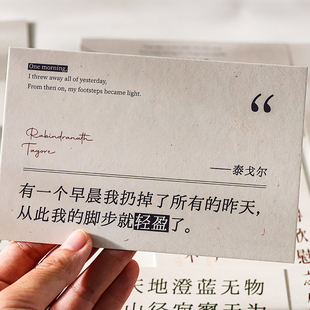 One morning,
I threw away all of yesterday,
From then on, my footsteps became light.
“
Rabindranath
Tagore
——泰戈尔
有一个早晨我扔掉了所有的昨天，
从此我的脚步就轻盈了。
天地澄蓝无物